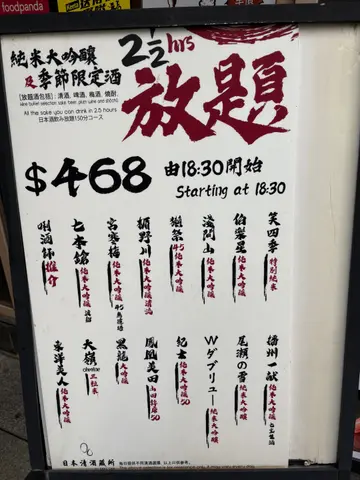 foodpanda
純米大吟釀
及季節限定酒
2½hrs
放題
[放題酒包括]：清酒, 啤酒, 梅酒, 燒酎.
All the sake you can drink in 2.5 hours
日本酒飲み放題150分コース
$468
由18:30開始
Starting at 18:30
笑四季 特別純米
伯楽星 純米大吟醸
浅間山 純米大吟醸
獺祭 45 純米大吟醸
楯野川 純米大吟醸
宮寒梅 純米大吟醸 45
七本鎗 純米大吟醸
唎酒師推介
播州一献 純米大吟醸
尾瀬の雪 純米大吟醸
Wダブリュー 純米大吟醸
紀土 純米大吟醸 50
鳳凰美田 山田錦 50
黒龍 大吟醸
大嶺 ohmine 三粒米
東洋美人 純米大吟醸
日本清酒藏所